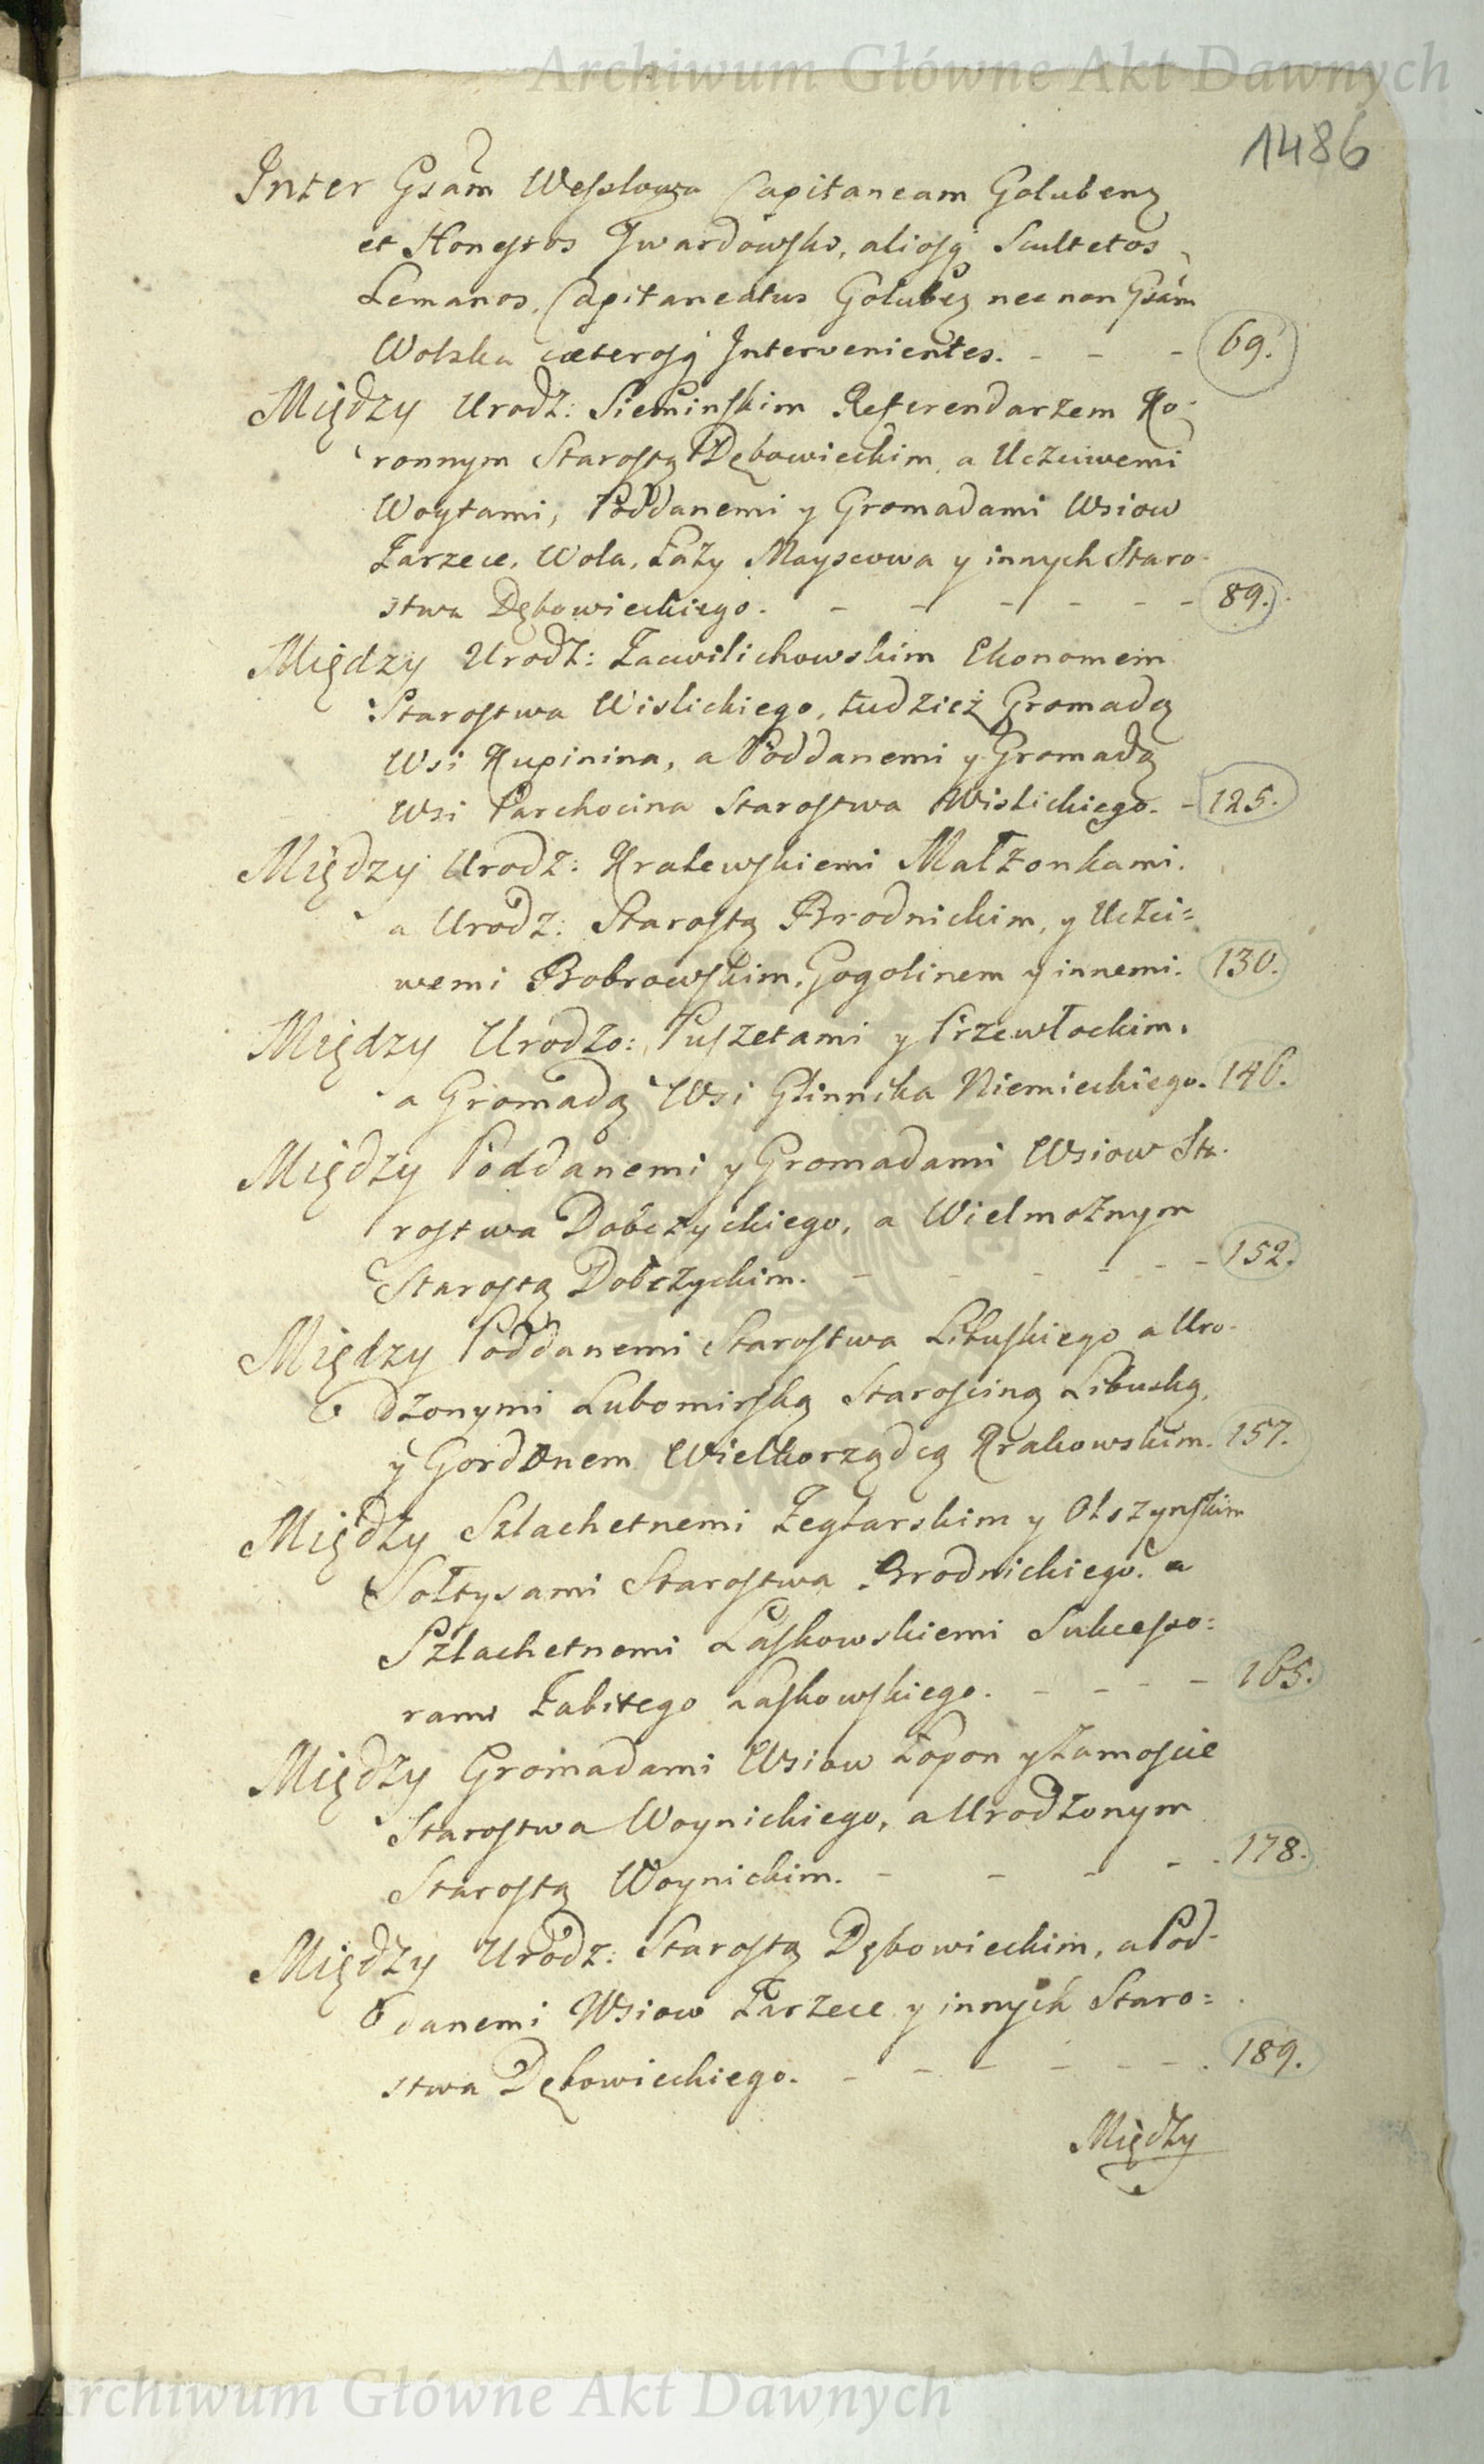 Archiwum Główne Akt Dawnych
1486
Inter Gsam Wesslowa Capitaneam Golubens
et Honestos Gwardowski, aliosq Scultetos
Lemanos, Capitaneatus Golubs nec non Gsam
Wolska cæterosq Intervenientes. - - - 69.
Między Urodz: Siemińskim Referendarzem Ko-
ronnym Starostą Dębowieckim, a Uczciwemi
Woytami, Poddanemi y Gromadami Wsiow
Zarzece, Wola, Łazy Mayscowa y innych Staro-
stwa Dębowieckiego. - - - - - - 89.
Między Urodz: Zacwilichowskim Ekonomem
Starostwa Wislickiego, tudzież Gromadą
Wsi Kupinina, a Poddanemi y Gromadą
Wsi Parchocina Starostwa Wislickiego. - 125.
Między Urodz: Kralewskiemi Małżonkami.
a Urodz: Starostą Brodnickim, y Uczci=
wemi Bobrowskim, Gogolinem y innemi. 130.
Między Urodzo: Puszetami y Przewłockim,
a Gromadą Wsi Glinnika Niemieckiego. 146.
Między Poddanemi y Gromadami Wsiow Sta-
rostwa Dobczyckiego, a Wielmożnym
Starostą Dobczyckim. - - - - - - 152.
Między Poddanemi Starostwa Libuskiego a Uro-
dzonymi Lubomirską Starościną Libuską,
y Gordonem Wielkorządcą Krakowskim. 157.
Między Szlachetnemi Zeglarskim y Olszynskim
Sołtysami Starostwa Brodnickiego. a
Szlachetnemi Laskowskiemi Sukcesso=
rami Zabitego Laskowskiego. - - - - 165.
Między Gromadami Wsiow Łopon y Zamoście
Starostwa Woynickiego, a Urodzonym
Starostą Woynickim. - - - - - 178.
Między Urodz: Starostą Dębowieckim, a Pod-
danemi Wsiow Zarzece y innych Staro=
stwa Dębowieckiego. - - - - - - 189.
Między
Archiwum Główne Akt Dawnych